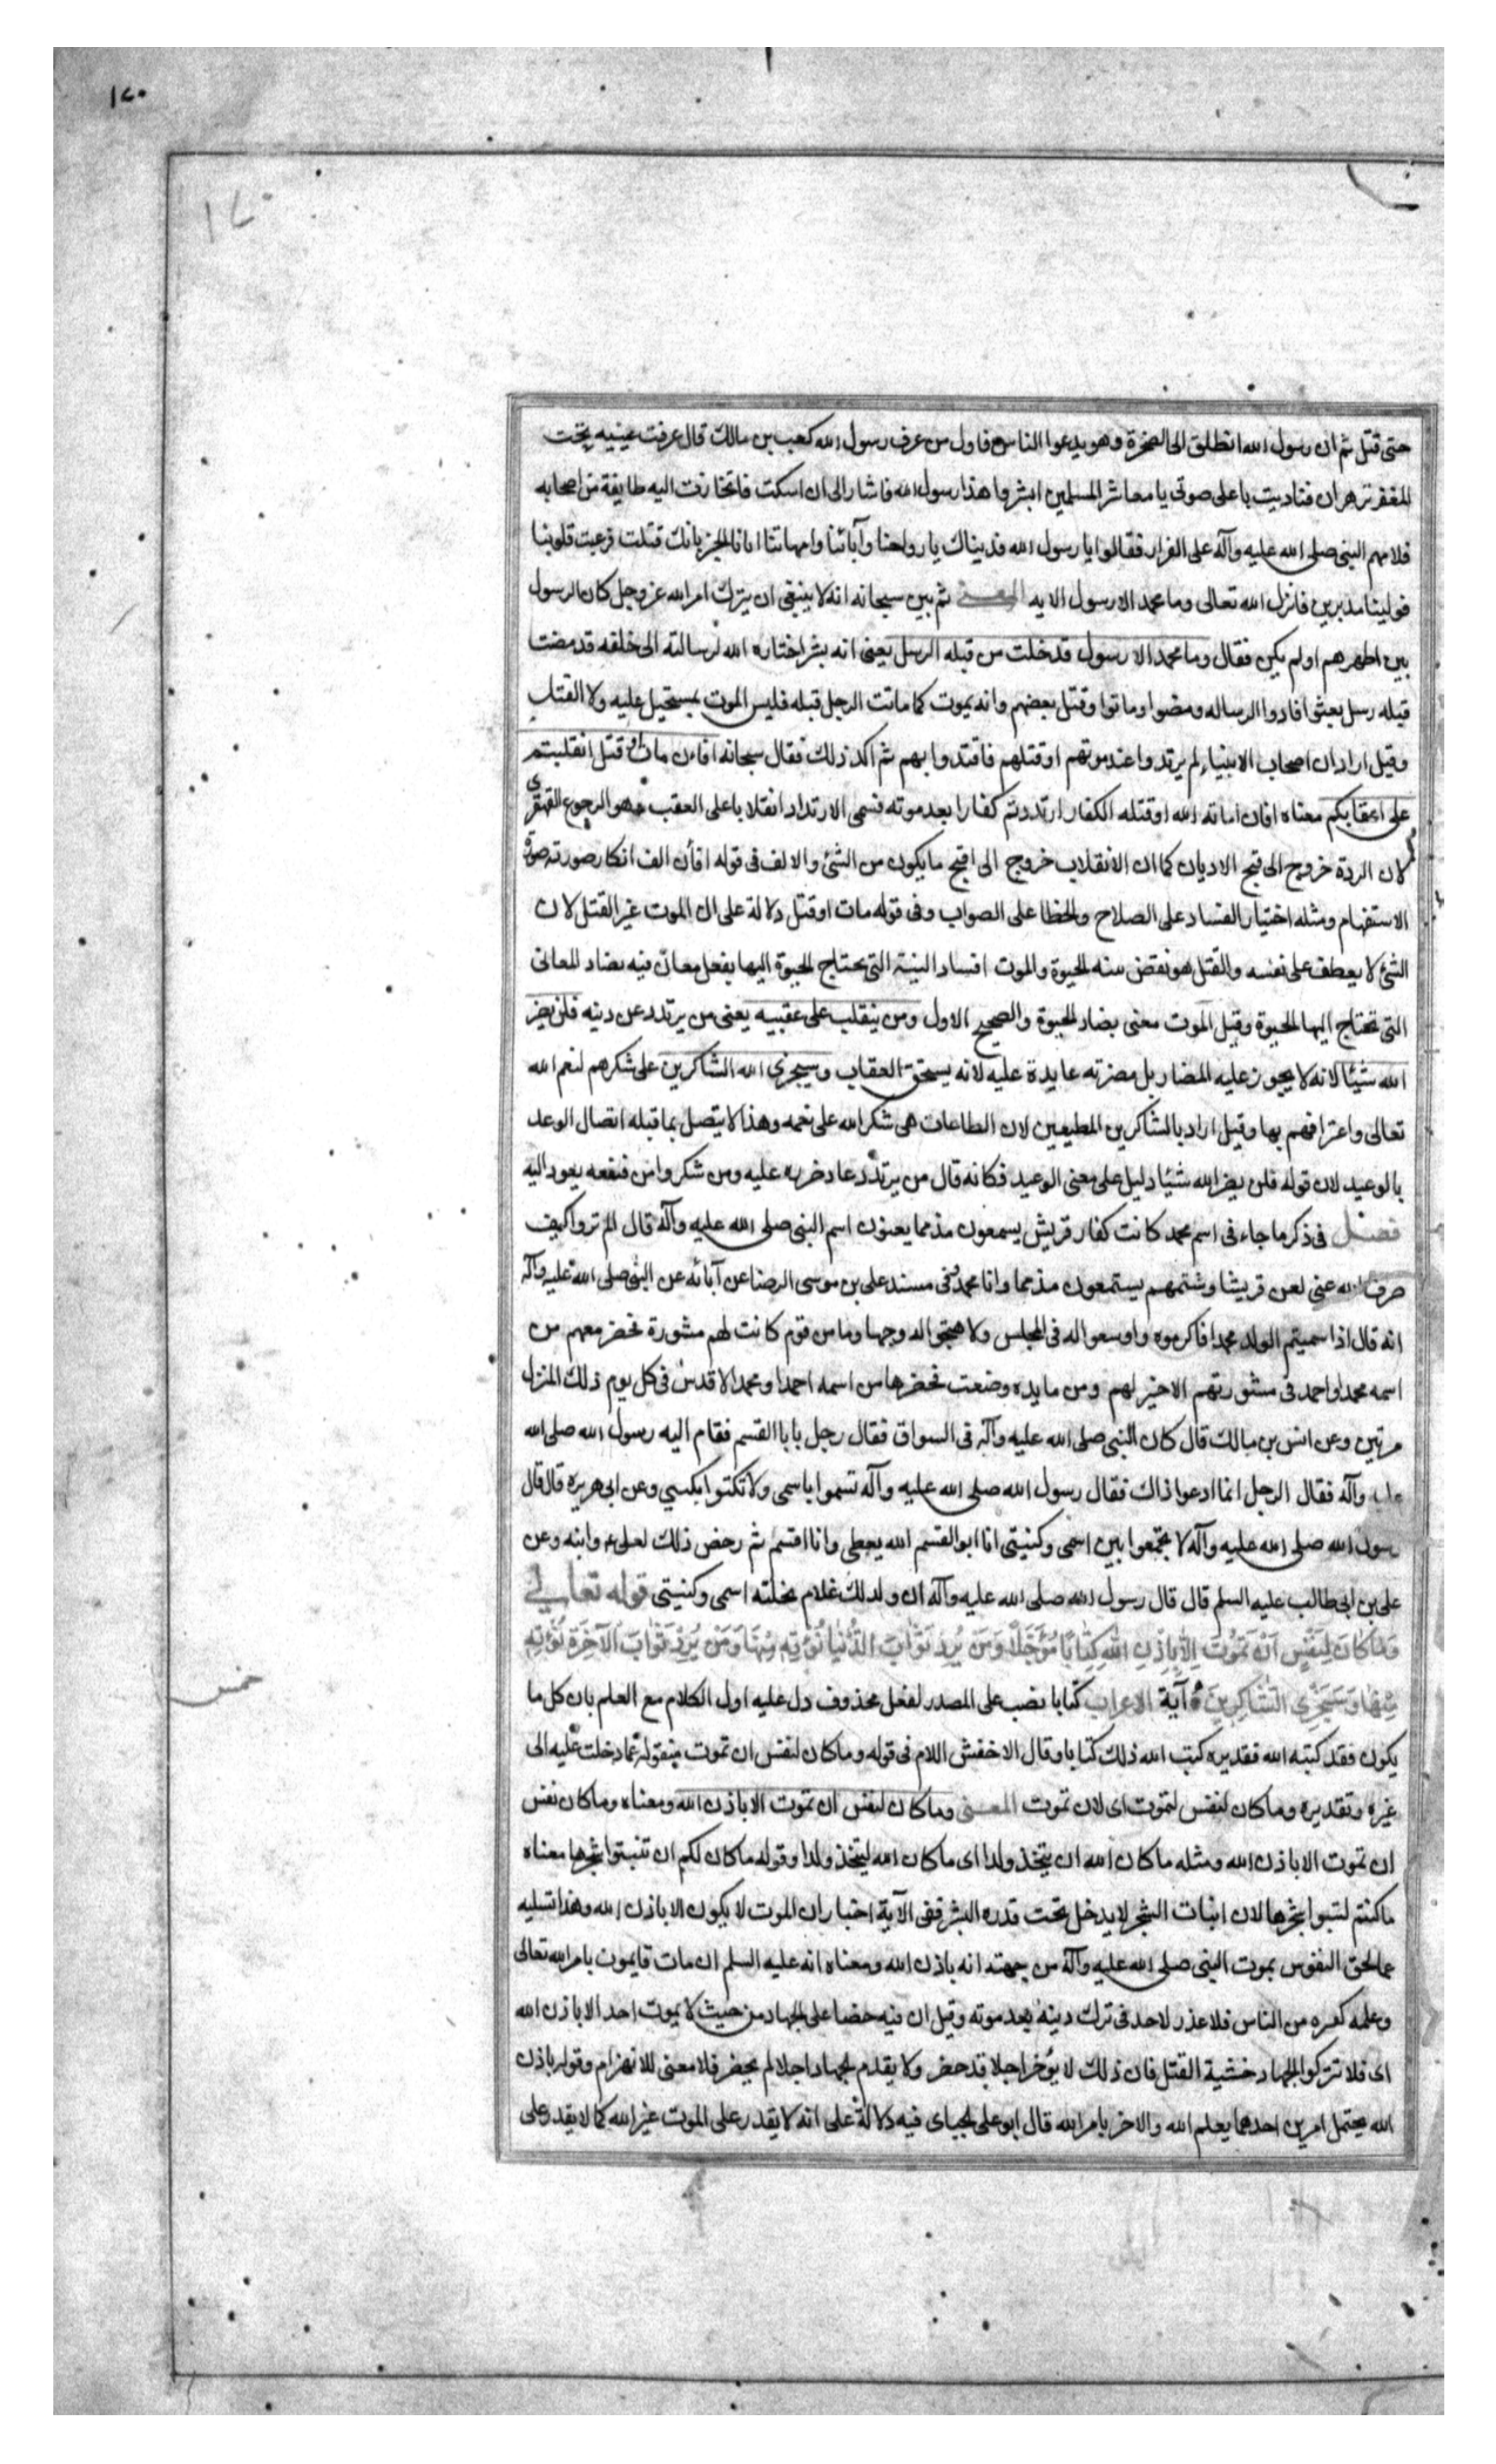 ١٧٠
١٧٠
حتى قتل ثم ان رسول الله انطلق الى الصخرة وهو يدعوا الناس فاول من عرف رسول الله كعب بن مالك قال عرفت عينيه تحت
المغفر تزهران فناديت باعلى صوتى يا معاشر المسلمين ابشروا هذا رسول الله فاشار الى ان اسكت فانحازت اليه طايفة من اصحابه
فلامهم النبى صلى الله عليه وآله على الفرار فقالوا يا رسول الله فديناك يا رواحنا وآبائنا وامهاتنا اتانا الخبر بانك قتلت فرعبت قلوبنا
فولينا مدبرين فانزل الله تعالى وما محمد الا رسول الايه المعنى ثم بين سبحانه انه لا ينبغى ان يترك امر الله عز وجل كان الرسول
بين اظهرهم او لم يكن فقال وما محمد الا رسول قد خلت من قبله الرسل يعنى انه بشر اختاره الله لرسالته الى خلقه قد مضت
قبله رسل بعثوا فادوا الرساله ومضوا وماتوا وقتل بعضهم وانه يموت كما ماتت الرجل قبله فليس الموت بمستحيل عليه ولا القتل
وقيل اراد ان اصحاب الانبياء لم يرتدوا عند موتهم او قتلهم فاقتدوا بهم ثم اكد ذلك فقال سبحانه افاءن مات او قتل انقلبتم
على اعقابكم معناه افان اماته الله او قتله الكفار ارتددتم كفارا بعد موته فسمى الارتداد انقلابا على العقب وهو الرجوع القهقرى
لان الردة خروج الى قبح الاديان كما ان الانقلاب خروج الى اقبح ما يكون من الشئ والالف فى قوله افأن الف انكار صورته صورة
الاستفهام ومثله اختيار الفساد على الصلاح والخطا على الصواب وفى قوله مات او قتل دلالة على ان الموت غير القتل لان
الشئ لا يعطف على نفسه والقتل هو نقض بنيه الحيوة والموت افساد البنية التى يحتاج الحيوة اليها بفعل معان فيه يضاد المعانى
التى تحتاج اليها الحيوة وقيل الموت معنى يضاد الحيوة والصحيح الاول ومن ينقلب على عقبيه يعنى من يرتدد عن دينه فلن يضر
الله شيئا لانه لا يجوز عليه المضار بل مضرته عايدة عليه لانه يستحق العقاب وسيجزى الله الشاكرين على شكرهم لنعم الله
تعالى واعترافهم بها وقيل اراد بالشاكرين المطيعين لان الطاعات هى شكر الله على نعمه وهذا لا يتصل بما قبله اتصال الوعد
بالوعيد لان قوله فلن يضر الله شيئا دليل على معنى الوعيد فكانه قال من يرتدد عاد ضرره عليه ومن شكر وامن فنفعه يعود اليه
فصل فى ذكر ما جاء فى اسم محمد كانت كفار قريش يسمعون مذمما يعنون اسم النبى صلى الله عليه وآله قال الم تروا كيف
صرف الله عنى لعن قريشا وشتمهم يستمعون مذمما وانا محمد وفى مسند على بن موسى الرضا عن آبائه عن النبى صلى الله عليه وآله
انه قال اذا سميتم الولد محمدا فاكرموه واوسعوا له فى المجلس ولا تقبحوا له وجها وما من قوم كانت لهم مشورة فحضر معهم من
اسمه محمد او احمد فى مشورتهم الا خير لهم ومن مايده وضعت فحضرها من اسمه احمدا ومحمد الا قدس فى كل يوم ذلك المنزل
مرتين وعن انس بن مالك قال كان النبى صلى الله عليه وآله فى السواق فقال رجل يا با القسم فقام اليه رسول الله صلى الله
عليه وآله فقال الرجل انما ادعوا ذاك فقال رسول الله صلى الله عليه وآله تسموا باسمى ولا تكنوا بكنيتى وعن ابى هريره قال قال
رسول الله صلى الله عليه وآله لا تجتمعوا بين اسمى وكنيتى انا ابو القسم الله يعطى وانا اقسم ثم رخص ذلك لعلى ء وابنه وعن
على بن ابى طالب عليه السلم قال قال رسول الله صلى الله عليه وآله ان ولد لك غلام نحلته اسمى وكنيتى قوله تعالى
وَمَا كَانَ لِنَفْسٍ اَنْ تَمُوتَ اِلَّا بِاِذْنِ اللهِ كِتَابًا مُؤَجَّلًا وَمَنْ يُرِدْ ثَوَابَ الدُّنْيَا نُؤْتِهِ مِنْهَا وَمَنْ يُرِدْ ثَوَابَ الْآخِرَةِ نُؤْتِهِ
مِنْهَا وَسَنَجْزِى الشَّاكِرِينَ آية الاعراب كتابا نصب على المصدر لفعل محذوف دل عليه اول الكلام مع العلم بان كل ما
يكون فقد كتبه الله فتقديره كتب الله ذلك كتابا وقال الاخفش اللام فى قوله وما كان لنفس ان تموت منقولة عما دخلت عليه الى
غيره وتقديره وما كان لنفس لتموت اى لان تموت المعنى وما كان لنفس ان تموت الا باذن الله ومعناه وما كان نفس
ان تموت الا باذن الله ومثله ما كان الله ان يتخذ ولدا اى ما كان الله ليتخذ ولدا وقوله ما كان لكم ان تنبتوا شجرها معناه
ما كنتم لتنبتوا شجرها لان انبات الشجر لا يدخل تحت قدره البشر ففى الآية اخبار ان الموت لا يكون الا باذن الله وهذا تسليه
عما لحق النفوس بموت النبى صلى الله عليه وآله من جهته انه باذن الله ومعناه انه عليه السلم ان مات فايموت بامر الله تعالى
وعلمه كغيره من الناس فلا عذر لاحد فى ترك دينه بعد موته وقيل ان فيه حضا على الجهاد من حيث لا يموت احد الا باذن الله
اى فلا تتركوا الجهاد خشية القتل فان ذلك لا يؤخر اجلا قد حضر ولا يقدم الجهاد اجلا لم يحضر فلا معنى للانهزام وقوله باذن
الله يحتمل امرين احدهما يعلم الله والاخر بامر الله قال ابو على الجباى فيه دلالة على انه لا يقدر على الموت غير الله كما لا يقدر على